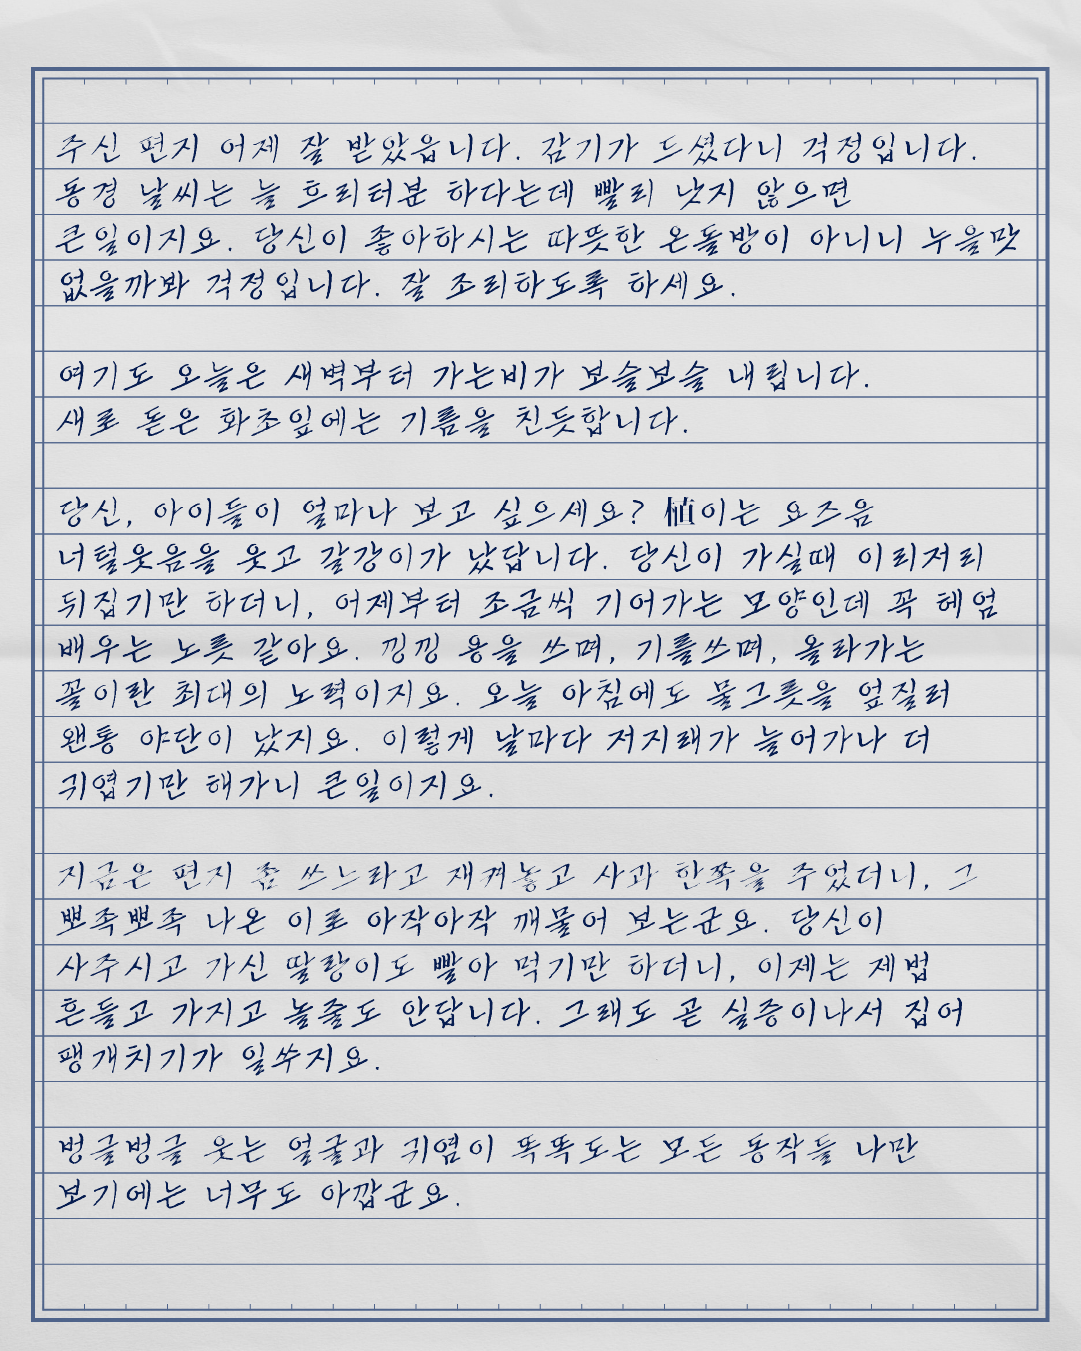 주신 편지 어제 잘 받았읍니다. 감기가 드셨다니 걱정입니다.
동경 날씨는 늘 흐리터분 하다는데 빨리 낫지 않으면
큰일이지요. 당신이 좋아하시는 따뜻한 온돌방이 아니니 누울맛
없을까봐 걱정입니다. 잘 조리하도록 하세요.
여기도 오늘은 새벽부터 가는비가 보슬보슬 내립니다.
새로 돋은 화초잎에는 기름을 친듯합니다.
당신, 아이들이 얼마나 보고 싶으세요? 植이는 요즈음
너털웃음을 웃고 갈강이가 났답니다. 당신이 가실때 이리저리
뒤집기만 하더니, 어제부터 조금씩 기어가는 모양인데 꼭 헤엄
배우는 노릇 같아요. 낑낑 용을 쓰며, 기를쓰며, 올라가는
꼴이란 최대의 노력이지요. 오늘 아침에도 물그릇을 엎질러
왠통 야단이 났지요. 이렇게 날마다 저지래가 늘어가나 더
귀엽기만 해가니 큰일이지요.
지금은 편지 좀 쓰느라고 재켜놓고 사과 한쪽을 주었더니, 그
뽀족뽀족 나온 이로 아작아작 깨물어 보는군요. 당신이
사주시고 가신 딸랑이도 빨아 먹기만 하더니, 이제는 제법
흔들고 가지고 놀줄도 안답니다. 그래도 곧 실증이나서 집어
팽개치기가 일쑤지요.
벙글벙글 웃는 얼굴과 귀염이 똑똑도는 모든 동작들 나만
보기에는 너무도 아깝군요.